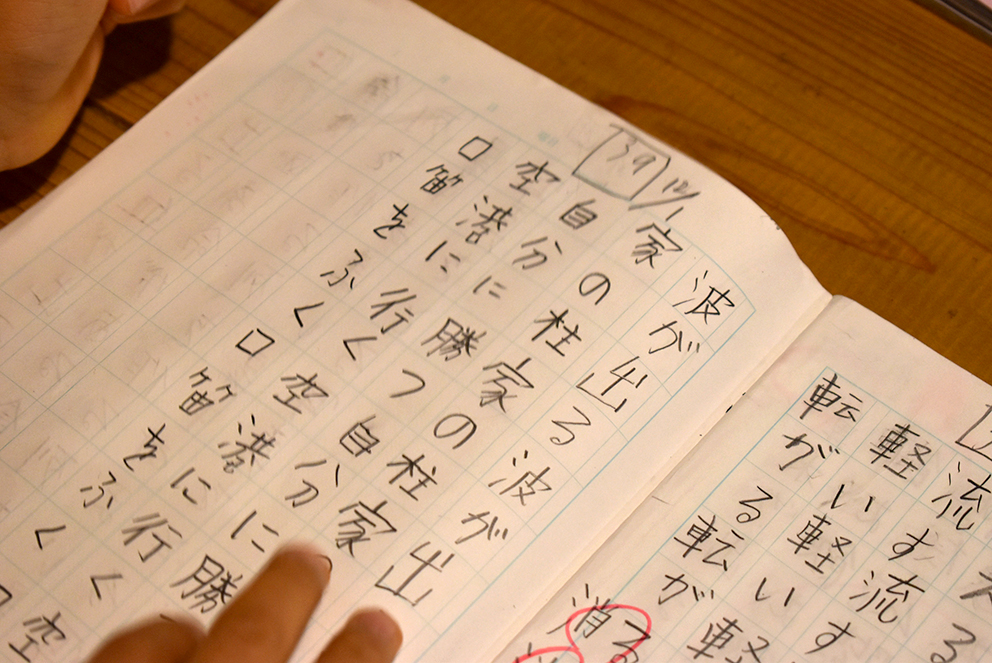 える
流す流す
軽いす軽い軽
転がる転がる
消
39 12/1
波が出る波が出
家の柱家の柱家
自分に勝つ自分に勝
空港に行く空港に行く空
口笛をふく口笛をふく口